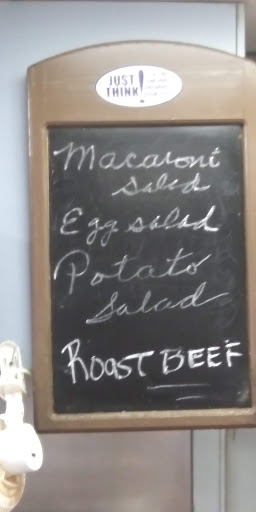 JUST
THINK!
Macaroni
Salad
Egg salad
Potato
Salad
ROAST BEEF